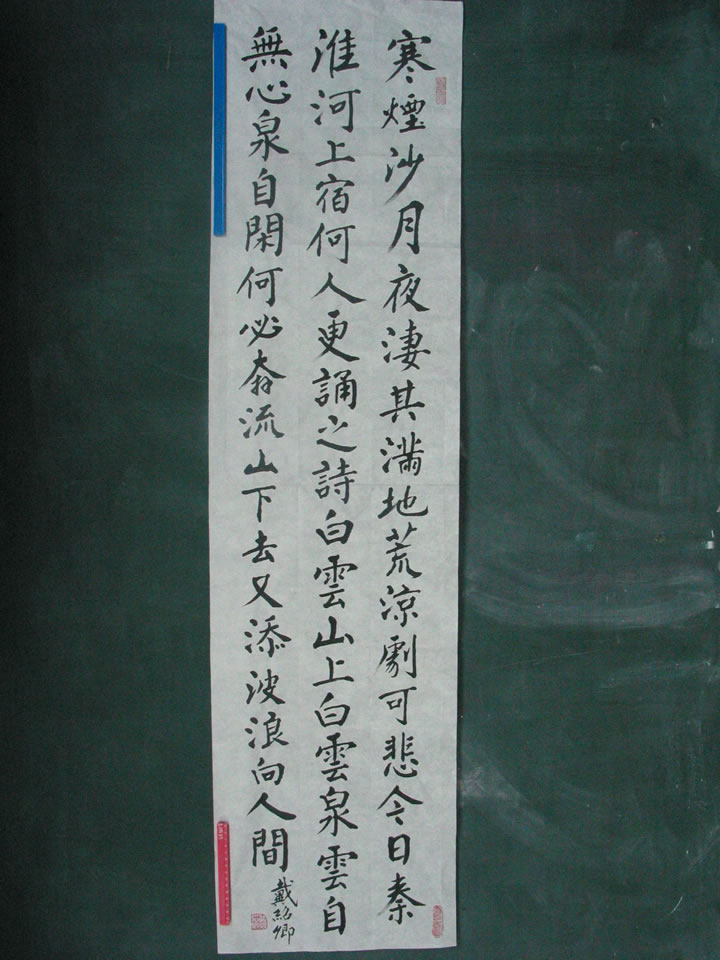 寒煙沙月夜淒其滿地荒涼劇可悲今日秦
淮河上宿何人更誦之詩白雲山上白雲泉雲自
無心泉自閑何必奔流山下去又添波浪向人間
戴紹卿